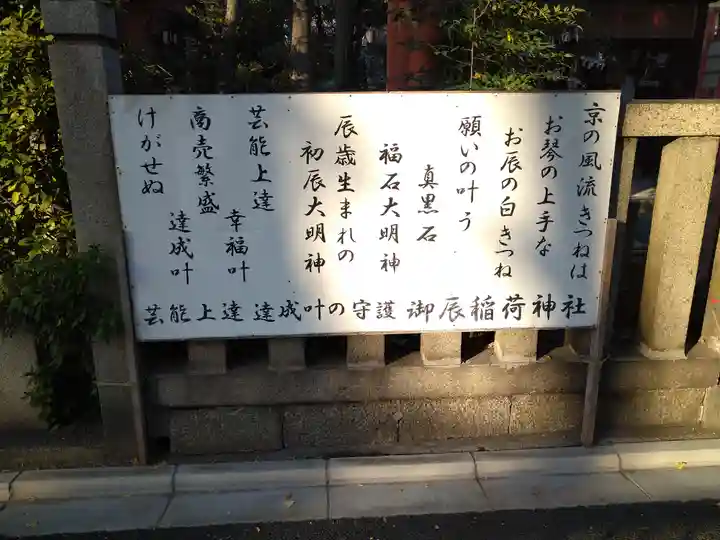 京の風流きつねは
お琴の上手な
お辰の白きつね
願いの叶う
真黒石
福石大明神
辰歳生まれの
初辰大明神
芸能上達
幸福叶
商売繁盛
達成叶
けがせぬ
芸能上達達成叶の守護御辰稲荷神社